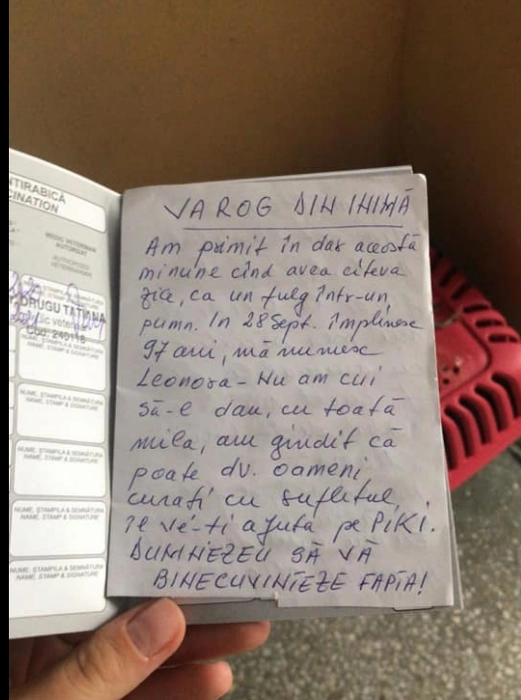 NTIRABICĂ
CINATION
MEDIC VETERINAR
AUTORIZAT
AUTHORIZED
VETERINARIAN
DRUGU TATIANA
Cod: 240118
NUME, ŞTAMPILA & SEMNĂTURA
NAME, STAMP & SIGNATURE
NUME, ŞTAMPILA & SEMNĂTURA
NAME, STAMP & SIGNATURE
NUME, ŞTAMPILA & SEMNĂTURA
NAME, STAMP & SIGNATURE
NUME, ŞTAMPILA & SEMNĂTURA
NAME, STAMP & SIGNATURE
NUME, ŞTAMPILA & SEMNĂTURA
NAME, STAMP & SIGNATURE
VA ROG DIN INIMĂ
Am primit în dar această
minune cînd avea cîteva
zile, ca un fulg într-un
pumn. In 28 Sept. împlinesc
97 ani, mă numesc
Leonora - Nu am cui
să-l dau, cu toată
mila, am gîndit că
poate dv. oameni
curați cu sufletul,
îl vé-ți ajuta pe PIKI.
DUMNEZEU SĂ VĂ
BINECUVINTEZE FAPTA!